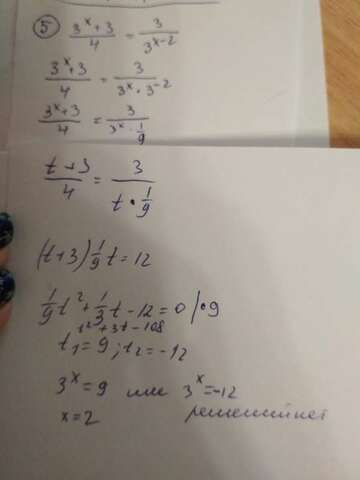 ⑤ (3^x+3)/4 = 3/(3^(x-2))
(3^x+3)/4 = 3/(3^x · 3^(-2))
(3^x+3)/4 = 3/(3^x · 1/9)
(t+3)/4 = 3/(t · 1/9)
(t+3) 1/9 t = 12
1/9 t² + 1/3 t - 12 = 0 | · 9
t² + 3t - 108
t₁ = 9 ; t₂ = -12
3^x = 9 или 3^x = -12
x = 2 решений нет